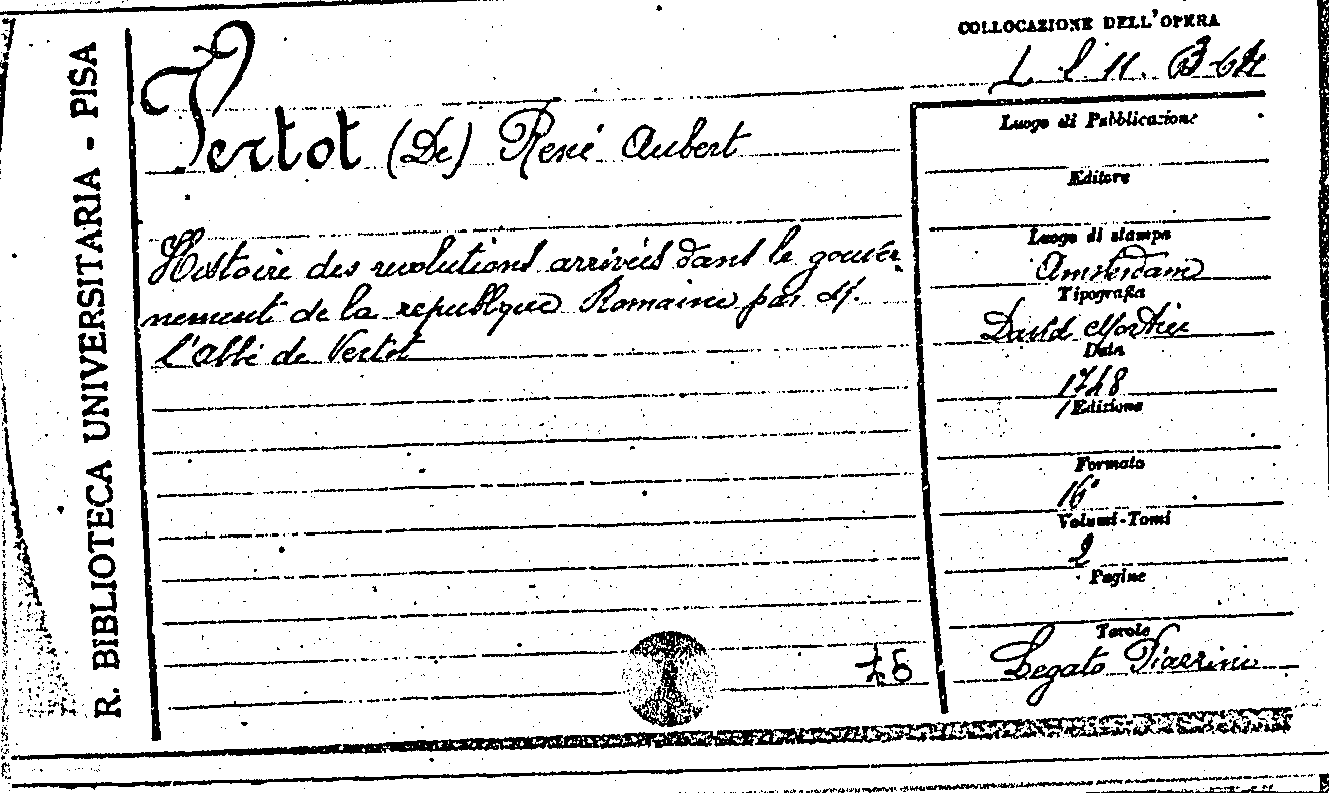 R. BIBLIOTECA UNIVERSITARIA - PISA
COLLOCAZIONE DELL'OPERA
Vertot (De) René Aubert
Histoire des revolutions arrivées dans le gouver
nement de la republque Romaine par M.
l'abbé de Vertot
Luogo di Pubblicazione
Editore
Luogo di stampa
Amsterdam
Tipografia
David Mortier
Data
1748
Edizione
Formato
16°
Volumi-Tomi
2
Pagine
Tavole
Legato Piaerini